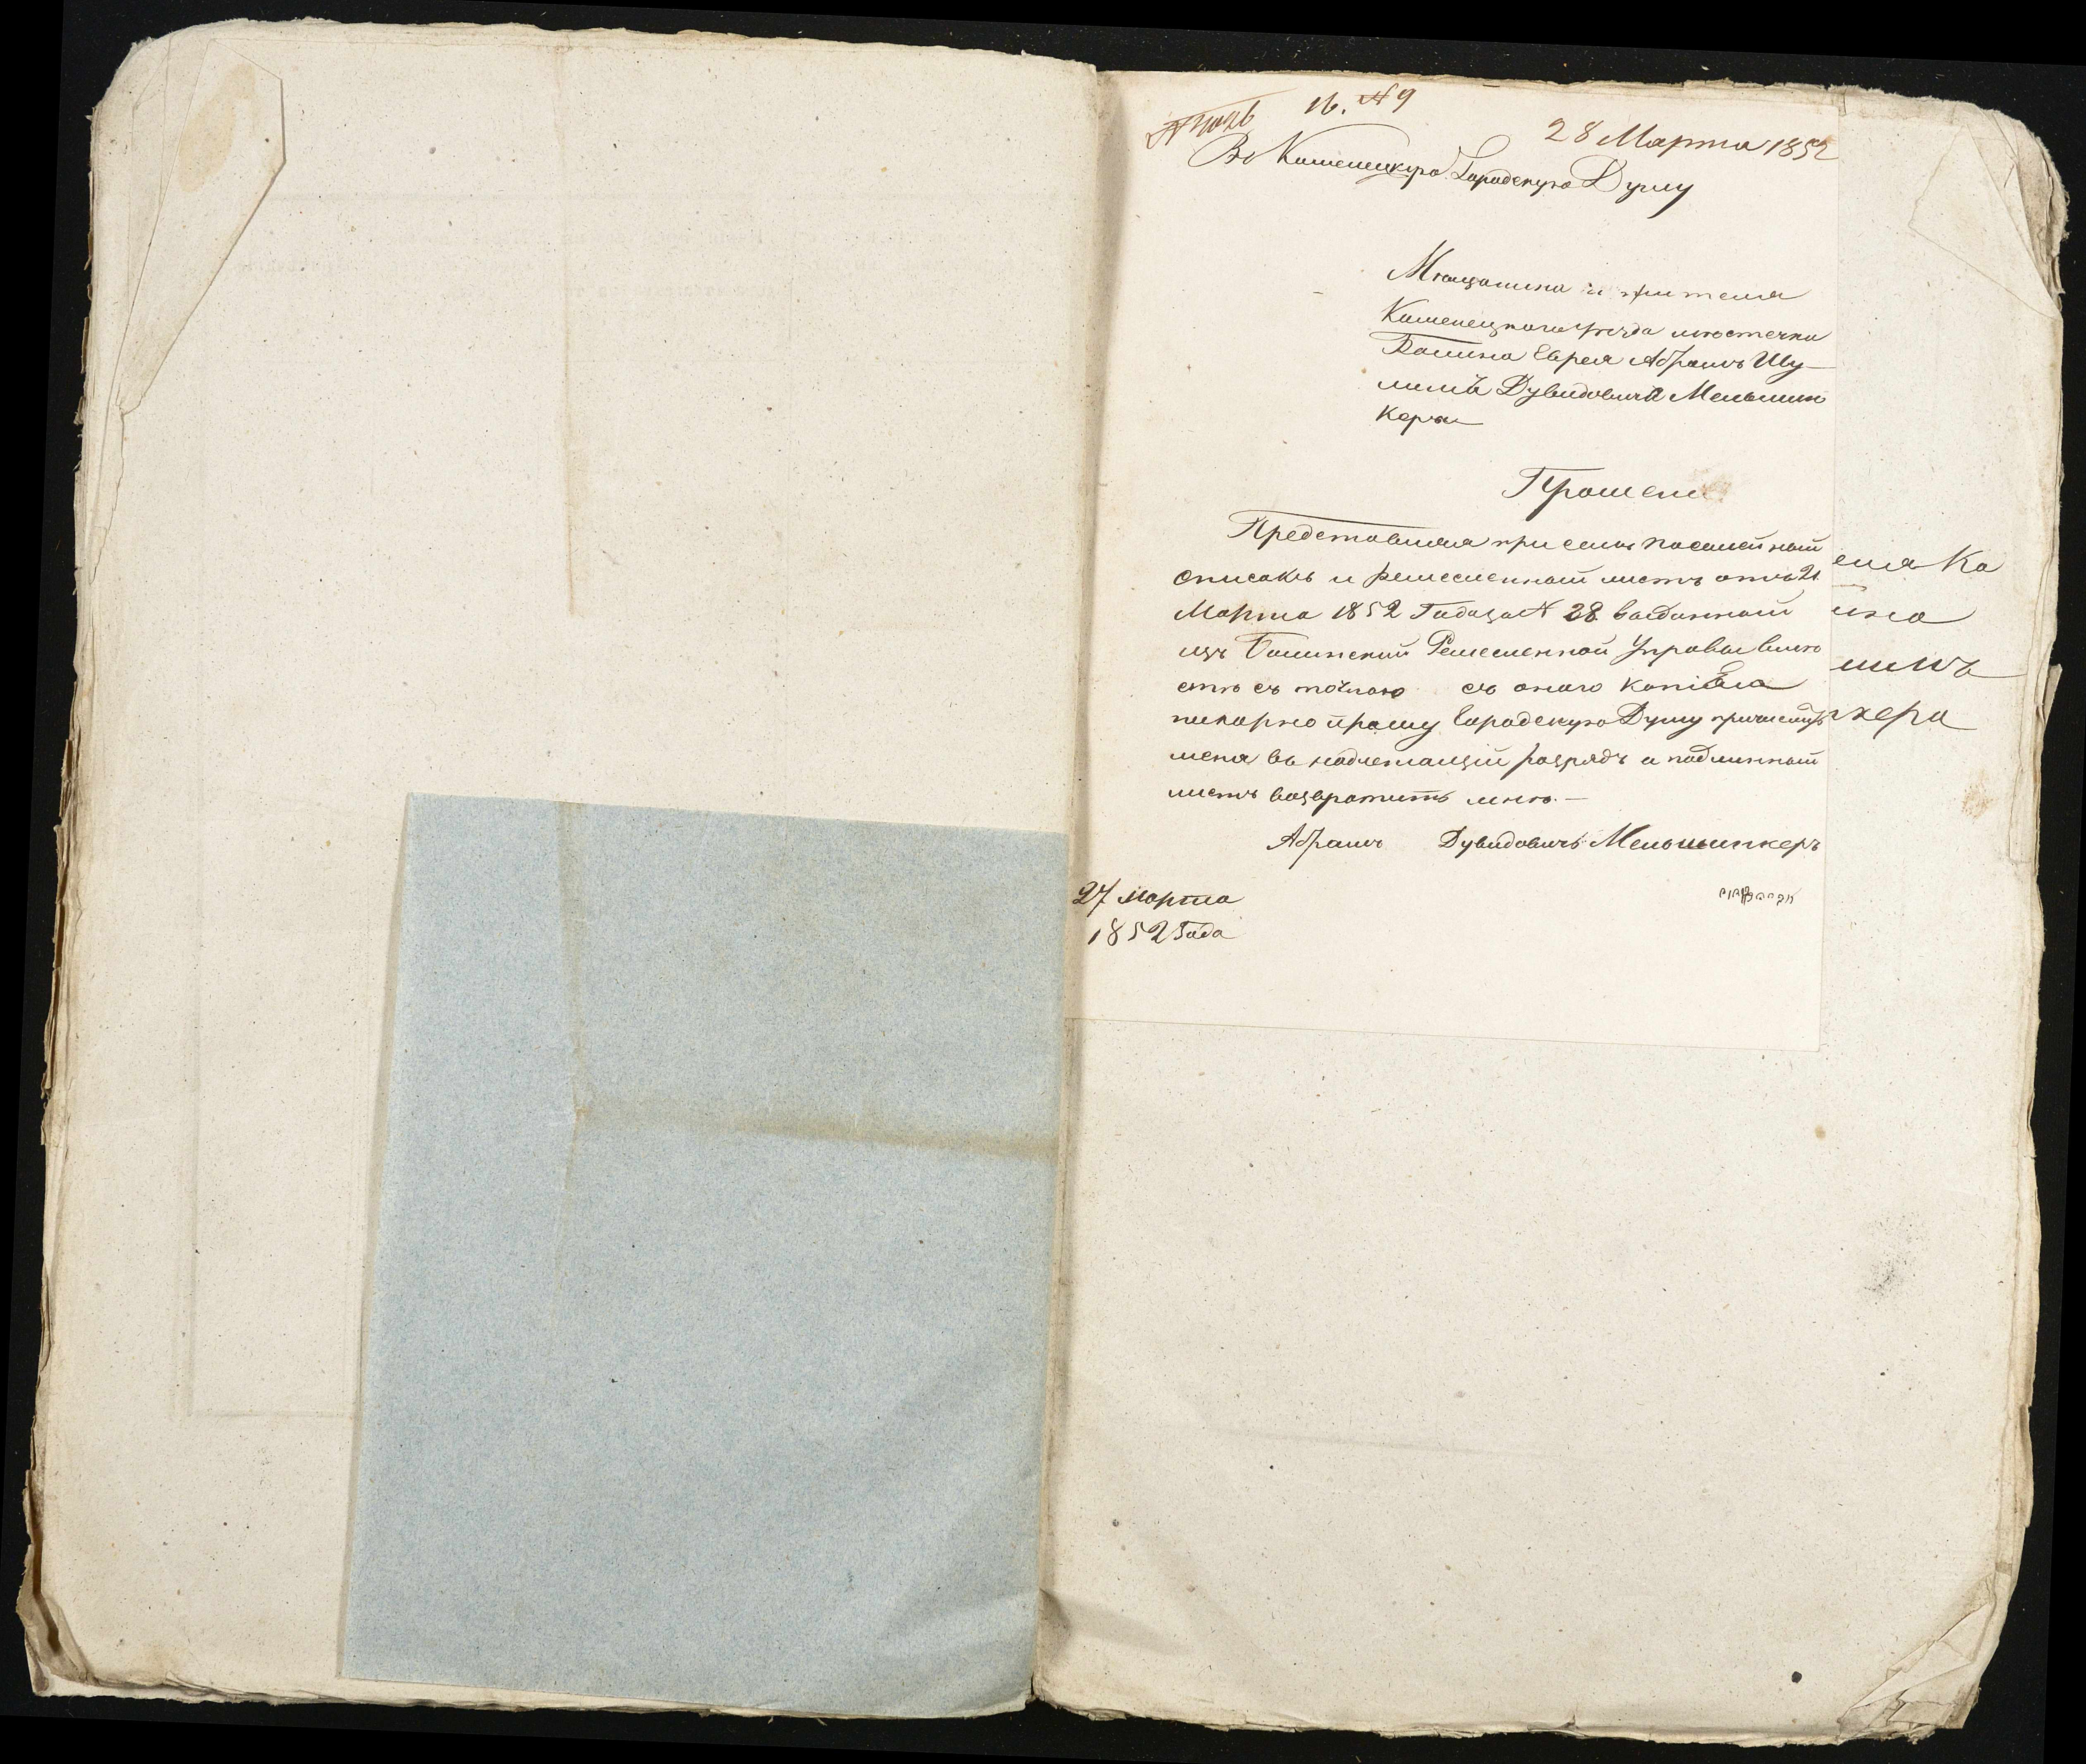 16. № 9
28 Марта 1852
Въ Каменецкую Городскую Думу
Мѣщанина и жителя
Каменецкого уѣзда мѣстечка
Балина Еврея Абрамъ Шу-
лима Дувидовича Мельшин
кера
Прошени
Представляя при семъ посемейный
списокъ и ремесленный листъ отъ 21
Марта 1852 Года за № 28 выданный
изъ Балинский Ремесленной Управы вмѣ
стѣ съ точною съ оного копиею
покорно прошу Городскую Думу причислить
меня въ надлежащий разрядъ а подлинный
листъ возвратить мнѣ.—
Абрамъ Дувидовичъ Мельшинкеръ
27 марта
1852 Года
еля Ка
ина
лимъ
кера